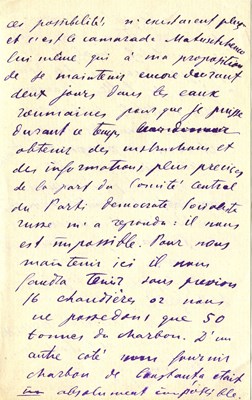 ces possibilités n'existaient plus
et c'est le camarade Matuschenco
lui même qui à ma proposition
de se maintenir encore durant
deux jours dans les eaux
roumaines pour que je puisse
durant ce temps
obtenir des instructions et
des informations plus precises
de la part du Comité Central
du Parti democrate socialiste
russe m'a repondu: il nous
est impossible. Pour nous
maintenir ici il nous
faudra tenir sous pression
16 chaudières or nous
ne possedons que 50
tonnes du charbon. D'un
autre coté nous fournir
charbon de Constantza était
absolument impossible.